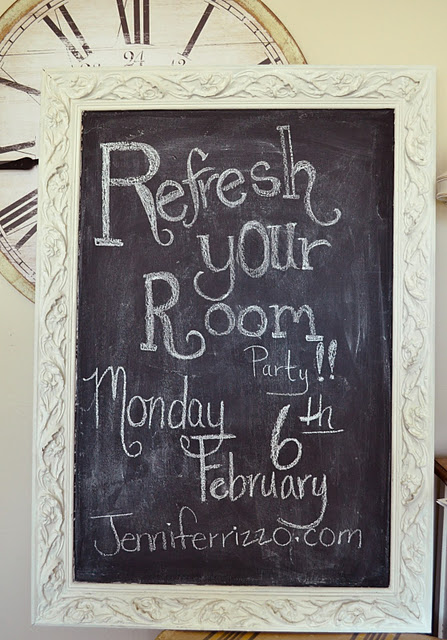 Refresh
your
Room
Party!!
Monday 6th
February
Jenniferrizzo.com